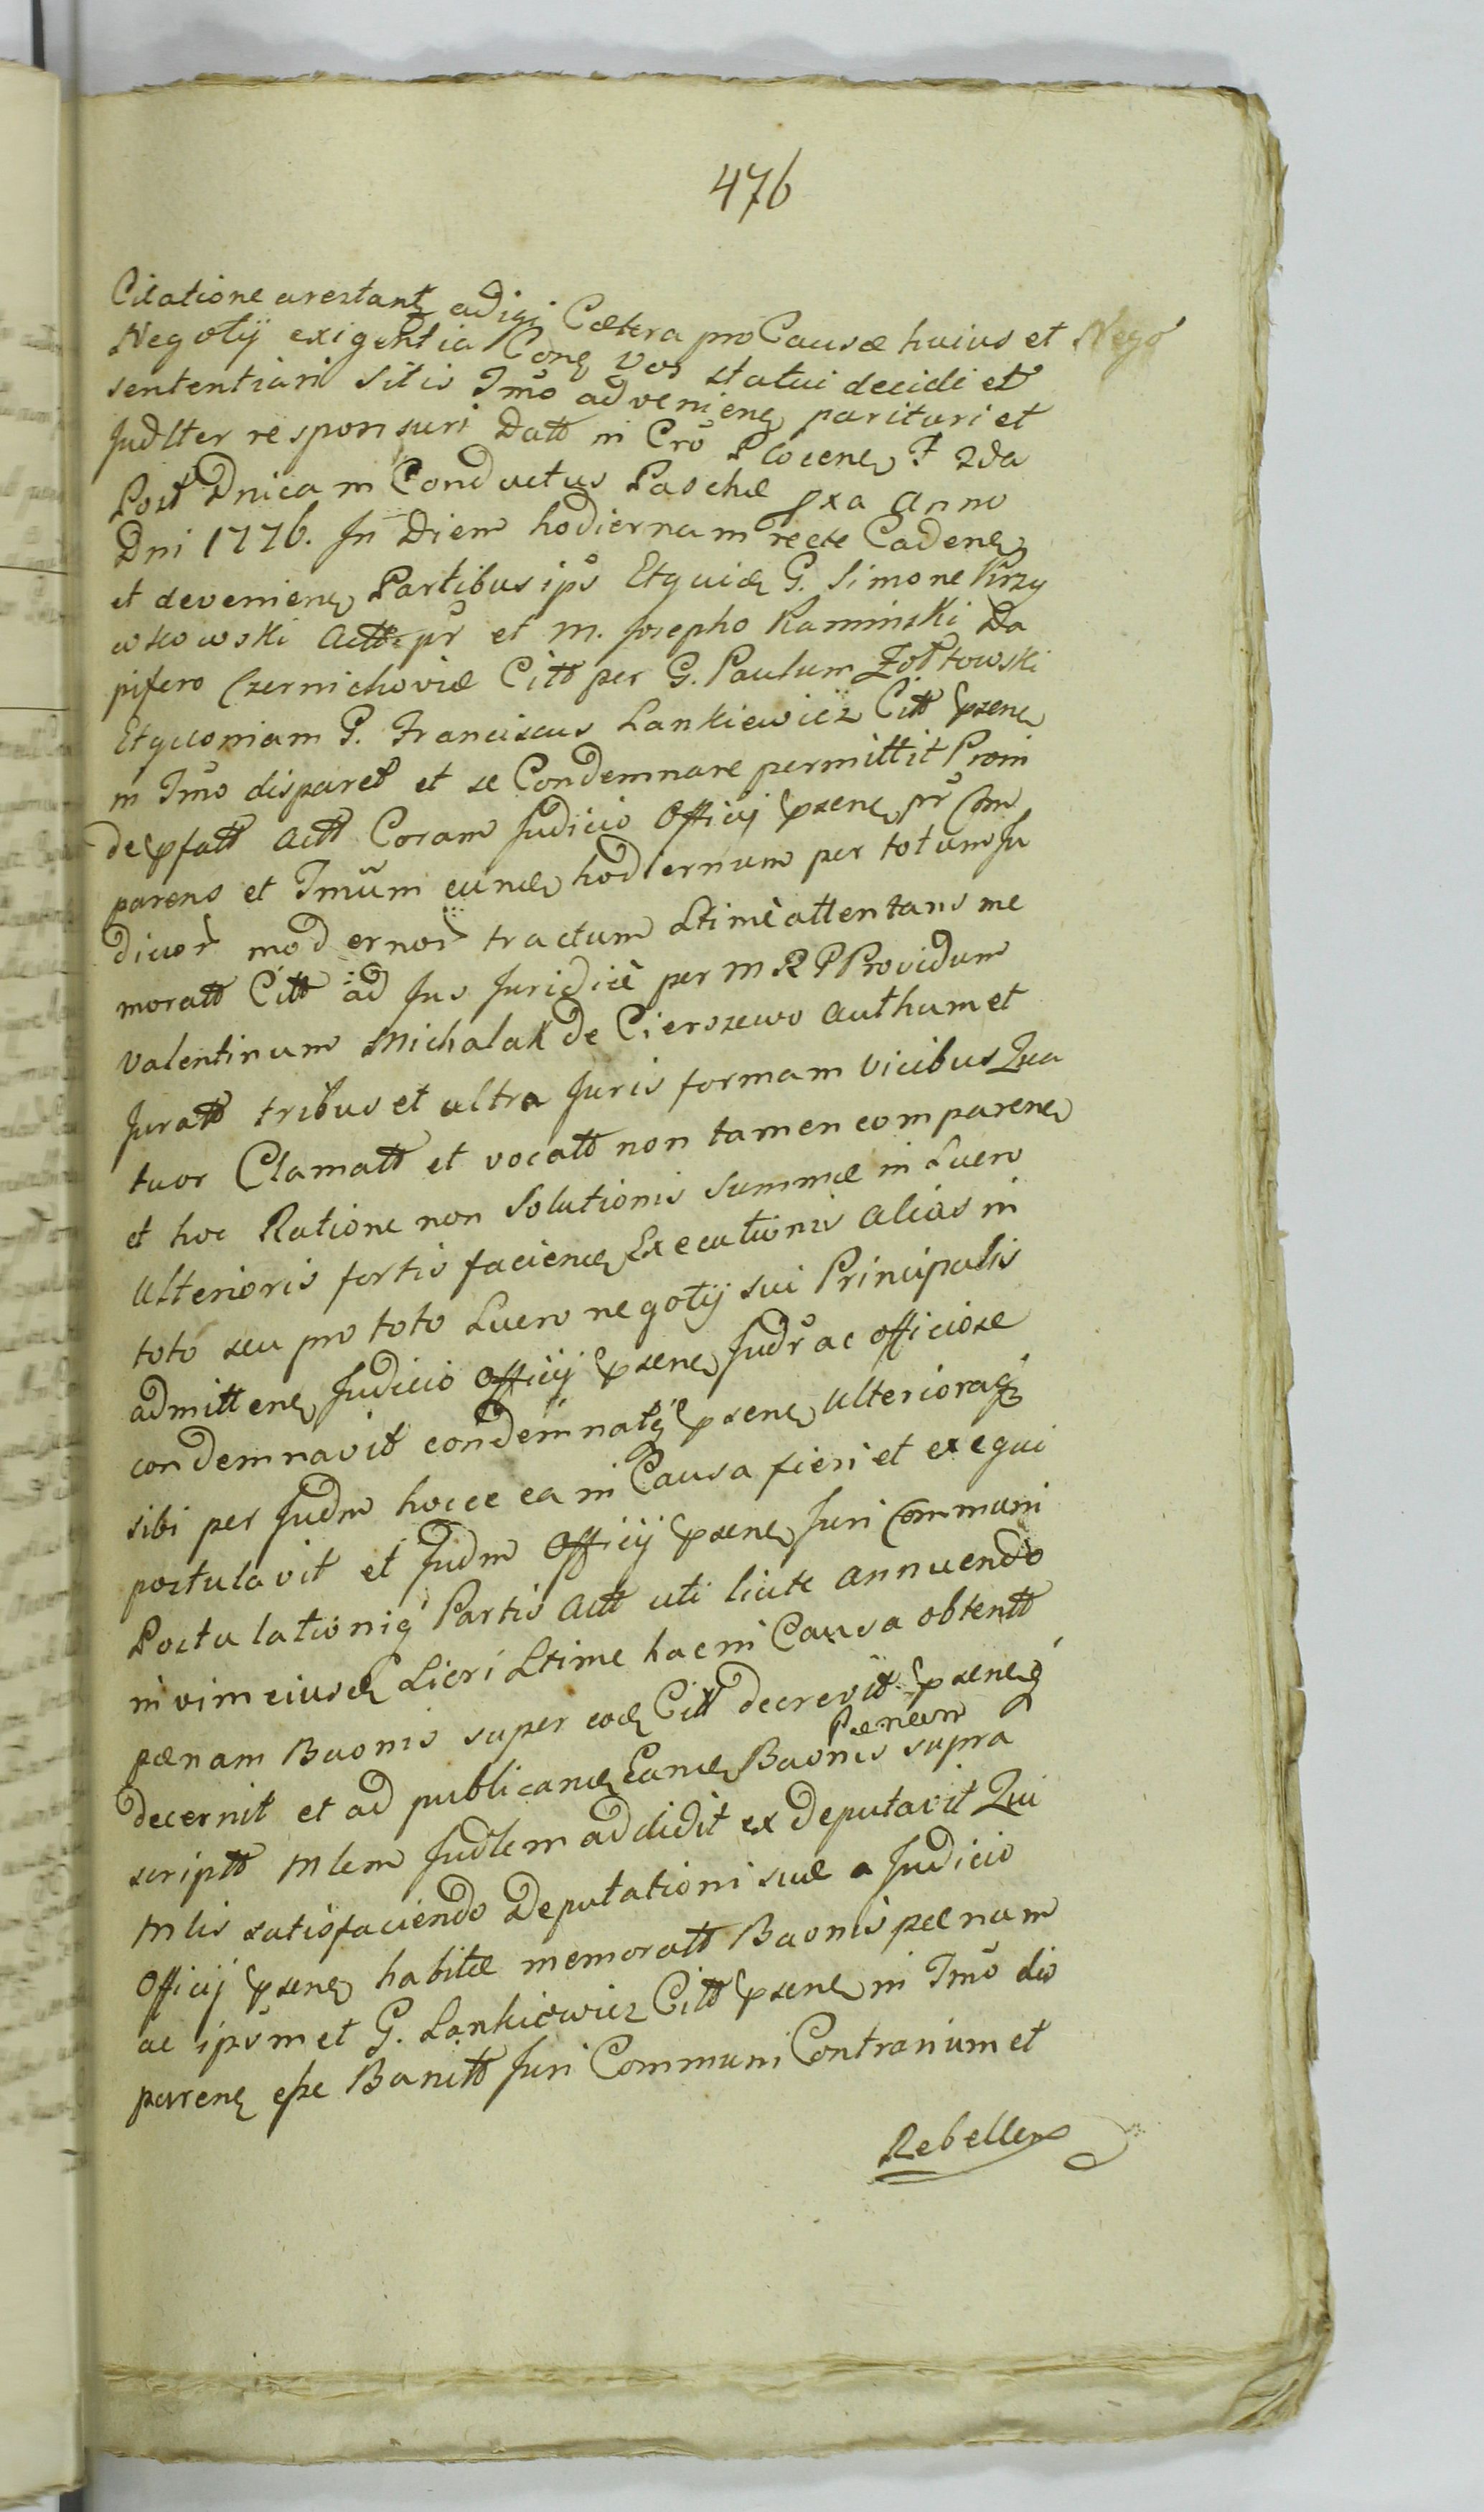 476
Citatione arestantꝫ adigi Cætera pro Causæ huius et Nego
Negotij exigentia Conꝫ Vos statui decidi et
sententiari Sitis Tmo advenienꝫ parituri et
Judlter responsuri Datt in Cro Plocenꝫ F 2da
Post Dnicam Conductus Paschæ pxa Anno
Dni 1776. In Diem hodiernam recte Cadenꝫ
et devenienꝫ Partibus ips Etquidꝫ G. Simone Krzy
wkowski Actt pr et M. Josepho Kaminski Da
pifero Czernichoviæ Citt per G. Paulum Żołtowski
Etquoniam G. Franciscus Lankiewicz Citt pxenꝫ
in Tmo disparet et se Condemnare permittit Proin
de pfatt Actt Coram Judicio Officij pxenꝫ pr Com
parens et Tmum eundꝫ hodiernum per totum Ju
dicior modernor tractum Ltime attentans me
moratt Citt ad Jus Juridice per M R P Providum
Valentinum Michalak de Cierszewo Authum et
Juratt tribus et ultra Juris formam vicibus Qua
tuor Clamatt et vocatt non tamen comparenꝫ
et hoc Ratione non Solutionis Summæ in Lucro
Ulterioris fortis faciendꝫ Executionis alias in
toto seu pro toto Lucro negotij sui Principalis
admittenꝫ Judicio Officij pxenꝫ Judr ac officiose
condemnavit condemnatqꝫ pxenꝫ Ulterioraqꝫ
sibi per Judm hocce ea in Causa fieri et exequi
postulavit et Judm Officij pxenꝫ Juri Communi
Postulationiqꝫ Partis Actt uti licite annuendo
in vim eiusdꝫ Licri Ltime hac in Causa obtentt
pænam Baonis super eodꝫ Citt decrevit pxenꝫqꝫ
decernit et ad publicandꝫ Eandꝫ Baonis Pænam supra
scriptt Mlem Judlem addidit ex deputavit Qui
Mlis satisfaciendo Deputationi suæ a Judicio
Officij pxenꝫ habitæ memoratt Baonis pænam
ac ipsummet G. Lankiewicz Citt pxenꝫ in Tmo dis
parenꝫ esse Banitt Juri Communi Contrarium et
Rebellem